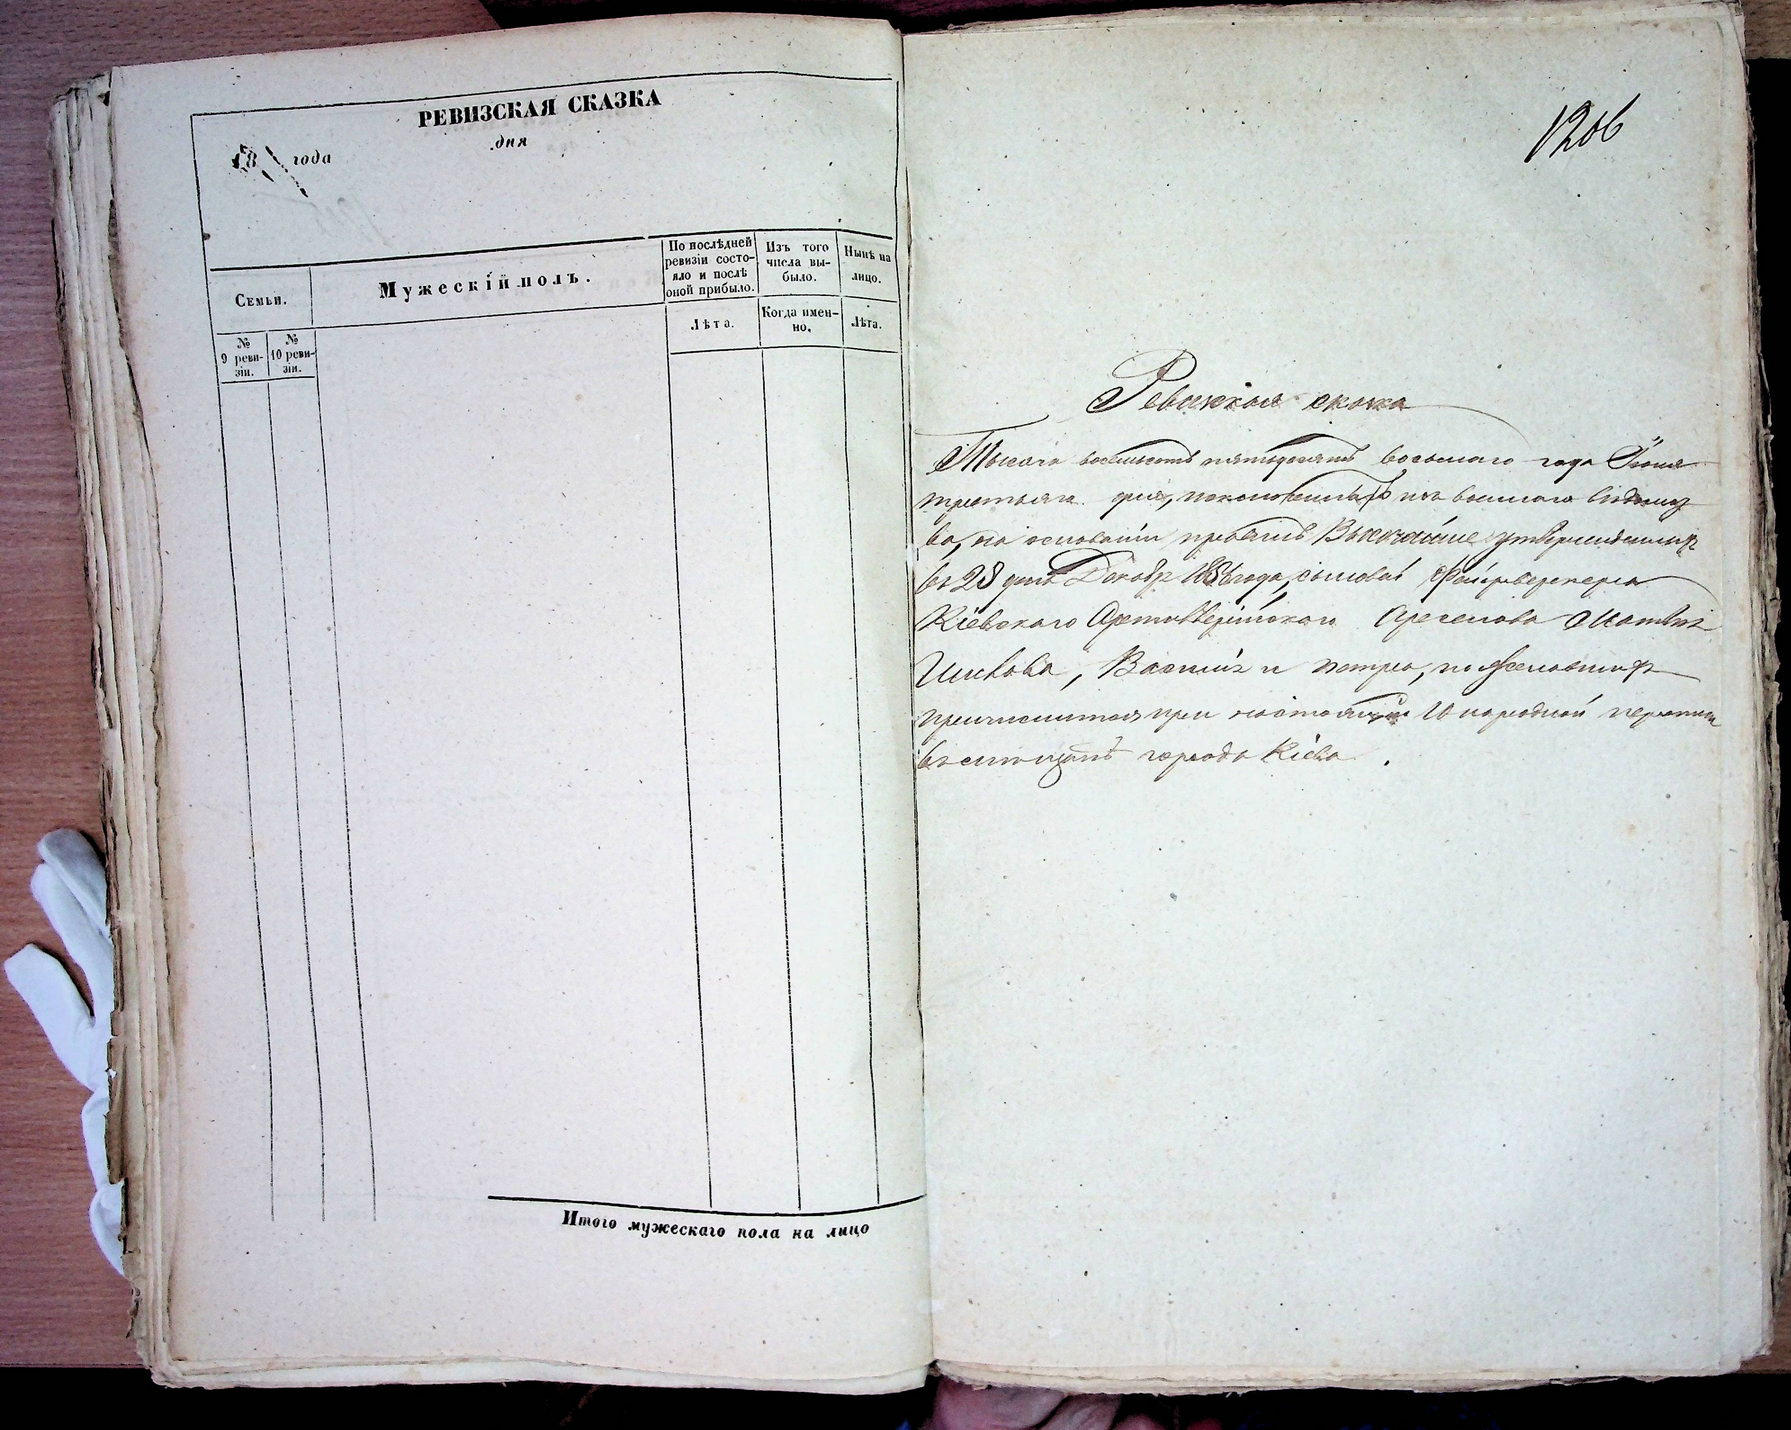 РЕВИЗСКАЯ СКАЗКА
18 года
дня
Семьи.
Мужескій полъ.
По послѣдней ревизіи состо-
яло и послѣ
оной прибыло.
Изъ того
числа вы-
было.
Нынѣ на
лицо.
№
9 реви-
зіи.
№
10 реви-
зіи.
Лѣта.
Когда имен-
но.
Лѣта.
Итого мужескаго пола на лицо
1206
Ревизская сказка
Тысяча восемьсотъ пятьдесятъ восьмаго года Іюня
третьяго дня, военнаго вѣдомст
ва, на основаніи правилъ Высочайше утвержденныхъ
въ 28 день Декабр 1856 года, сыновей Фейрверкера
Кіевскаго Артиллерійскаго Арсенала Матвѣя
Василія и Петра, пожелавшихъ
причислится при настоящей 10 народной переписи
въ города Кіева.